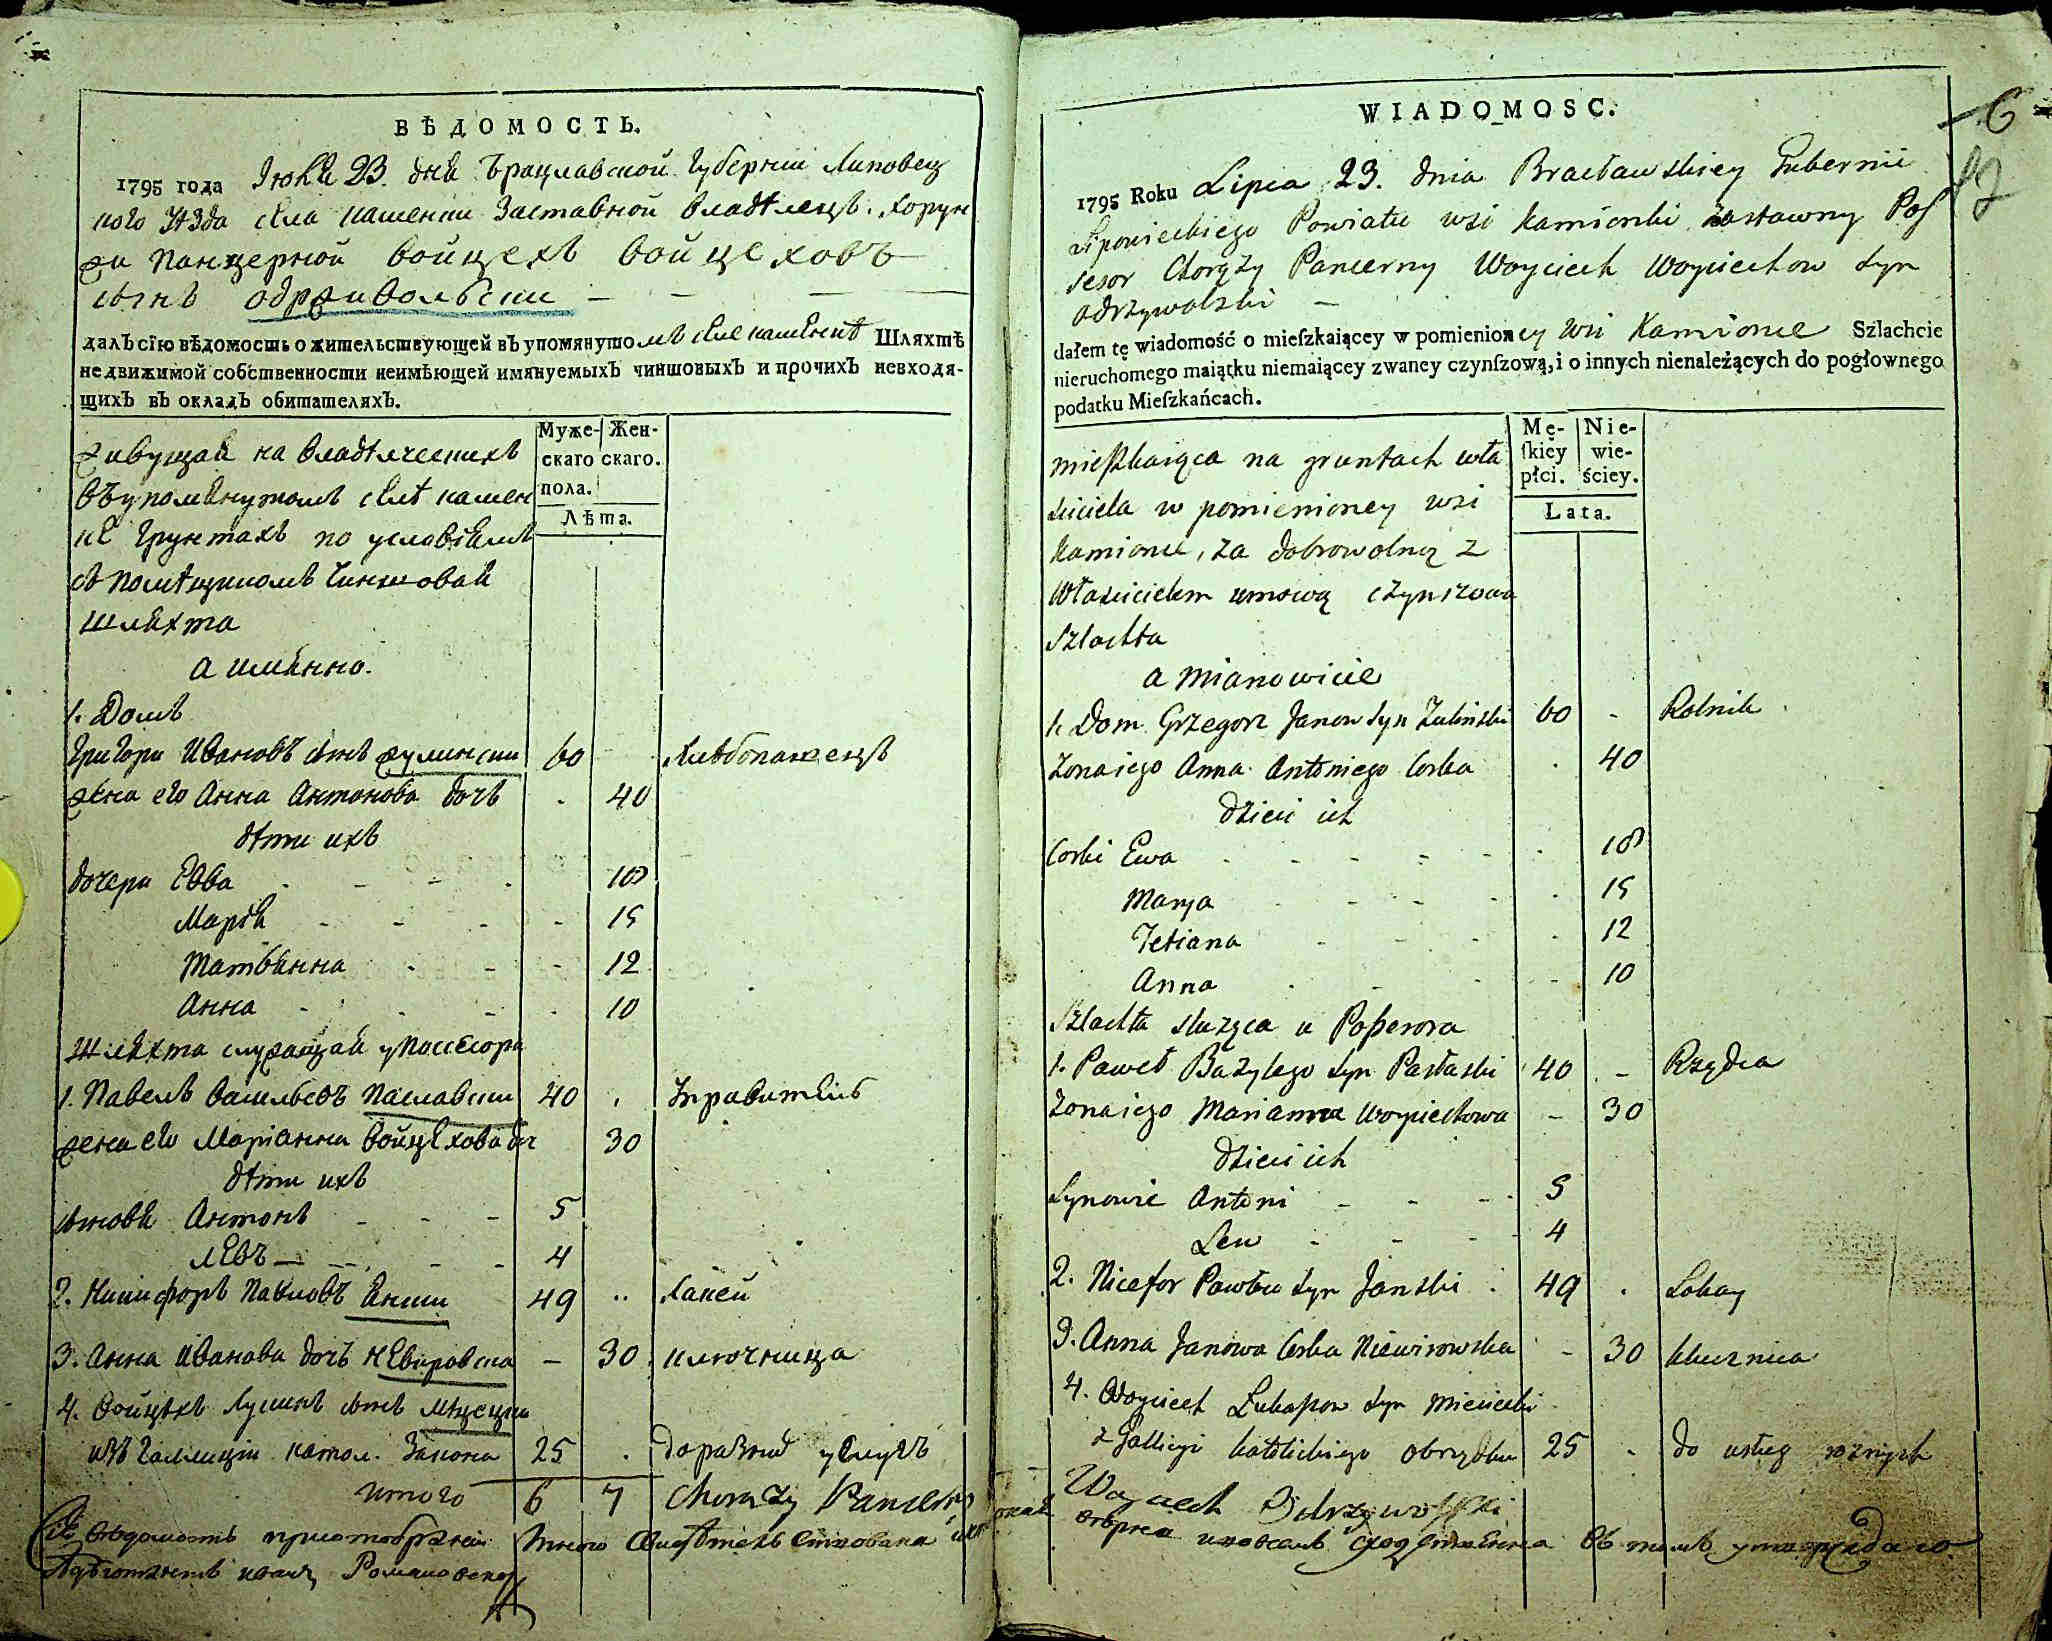 ВѢДОМОСТЬ.
1795 года Іюля 23. дня Брацлавской Губернии Липовец
кого Уѣзда села каменки Заставной владѣлецъ. Хорун
жи Панцерной войцехъ войцеховъ
сынъ одрживольски — — — —
далъ сїю вѣдомость о жительствующей въ упомянутомъ селе каменкѣ Шляхтѣ
недвижимой собственности неимѣющей имянуемыхъ чиншовыхъ и прочихъ невходя-
щихъ въ окладъ обитателяхъ.
Муже- Жен-
скаго скаго.
пола.
Лѣта.
живущая на владѣлческихъ
въ упомянутомъ селѣ камен
кѣ грунтахъ по условіямъ
съ помѣщикомъ Чиншовая
шляхта
а имянно.
1. Домъ
Григори Ивановъ сынъ жулински 60 Хлебопажецъ
жена его Анна Антонова дочъ . 40
дѣти ихъ
дочери Евва - - - . 18
Марія - - - - 15
Татьянна . - - 12
Анна - . - . 10
Шляхта служащая у Посесора
1. Павелъ васильевъ Паславски 40 . Управитель
жена его Маріанна войцехова дч 30
дѣти ихъ
сыновя Антонъ - - - 5
Левъ — - - - 4
2. Никифоръ Павловъ Янски 49 .. Лакей
3. Анна Иванова дочъ невировска — 30 ключница
4. Войцехъ Лукинъ сынъ мѣцецки
изъ Галлиціи катол. Закона 25 . для разныхъ услугъ
итого 6 7 Chorązy Pancerny
Сія вѣдомость
Романовской
WIADOMOSC.
6
1795 Roku Lipca 23. dnia Bracławskiey Gubernii
Lipowieckiego Powiatu wsi Kamionki zastawny Pos
sesor Chorąży Pancerny Woyciech Woyciechow syn
Odrzywolski —
dałem tę wiadomość o mieſzkaiącey w pomienioney wsi Kamionce Szlachcie
nieruchomego maiątku niemaiącey zwaney czynſzową, i o innych nienależących do pogłownego
podatku Mieſzkańcach.
Mę- Nie-
ſkiey wie-
płci. ściey.
Lata.
mieszkaiąca na gruntach wła
sciciela w pomienioney wsi
Kamionce, za dobrowolną z
Właścicielem umową czynszowa
Szlachta
a mianowicie
1. Dom Grzegorz Janow syn Żuliński 60 - Rolnik
Żona iego Anna Antoniego Corka . 40
dzieci ich
Corki Ewa - - - - - . 18
Marya - - - . 15
Tetiana - - - . 12
Anna . - - - 10
Szlachta służąca u Possesora
1. Paweł Bazylego syn Pasłaski 40 - Rządca
Żona iego Marianna Woyciechowa - 30
dzieci ich
Synowie Antoni - - - 5
Lew - - - - 4
2. Nicefor Pawłow syn Janski . 49 . Lokay
3. Anna Janowa Corka Niewirowska - 30 klucznica
4. Woyciech Łukaszow syn Miecicki
z Gallicyi katolickiego obrządku 25 . do usług roznych
Woyciech Odrzywolski